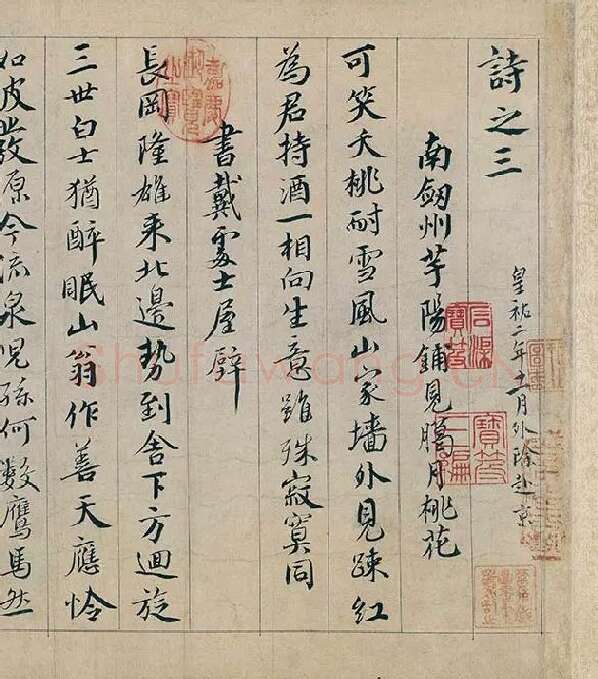 詩之三
皇祐二年十一月外除赴京
南劔州芋陽鋪見臘月桃花
可笑夭桃耐雪風山家墻外見踈紅
為君持酒一相向生意雖殊寂寞同
書戴處士屋壁
長岡隆雄來北邊勢到舍下方迴旋
三世白士猶醉眠山翁作善天應憐
如皮發原今流泉兒孫何數鷹馬然